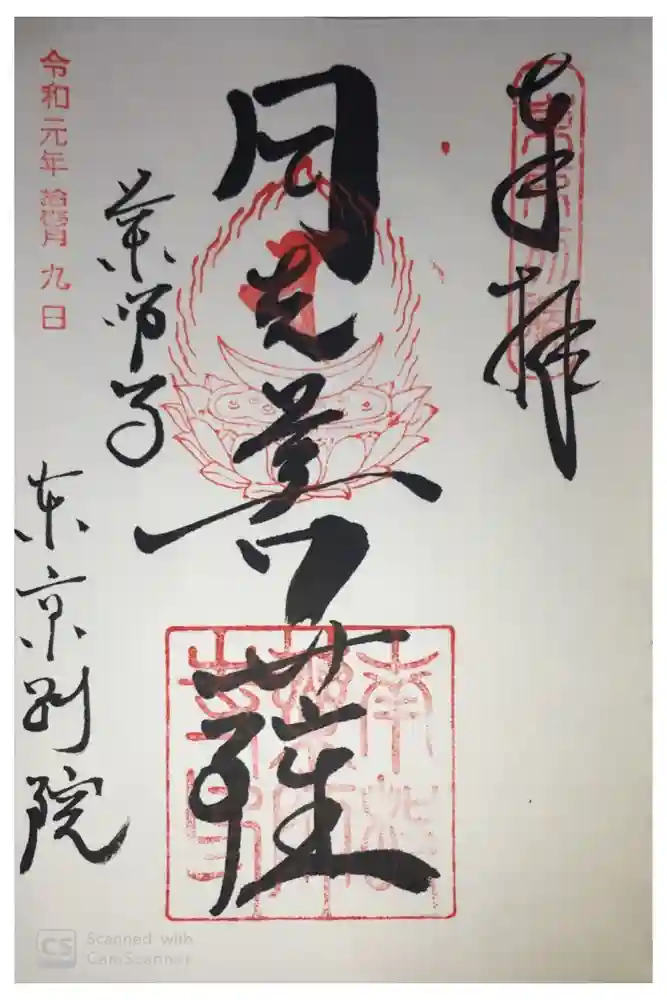 奉拝
月光菩薩
薬師寺
東京別院
令和元年 拾弐月 九日
CS Scanned with
CamScanner